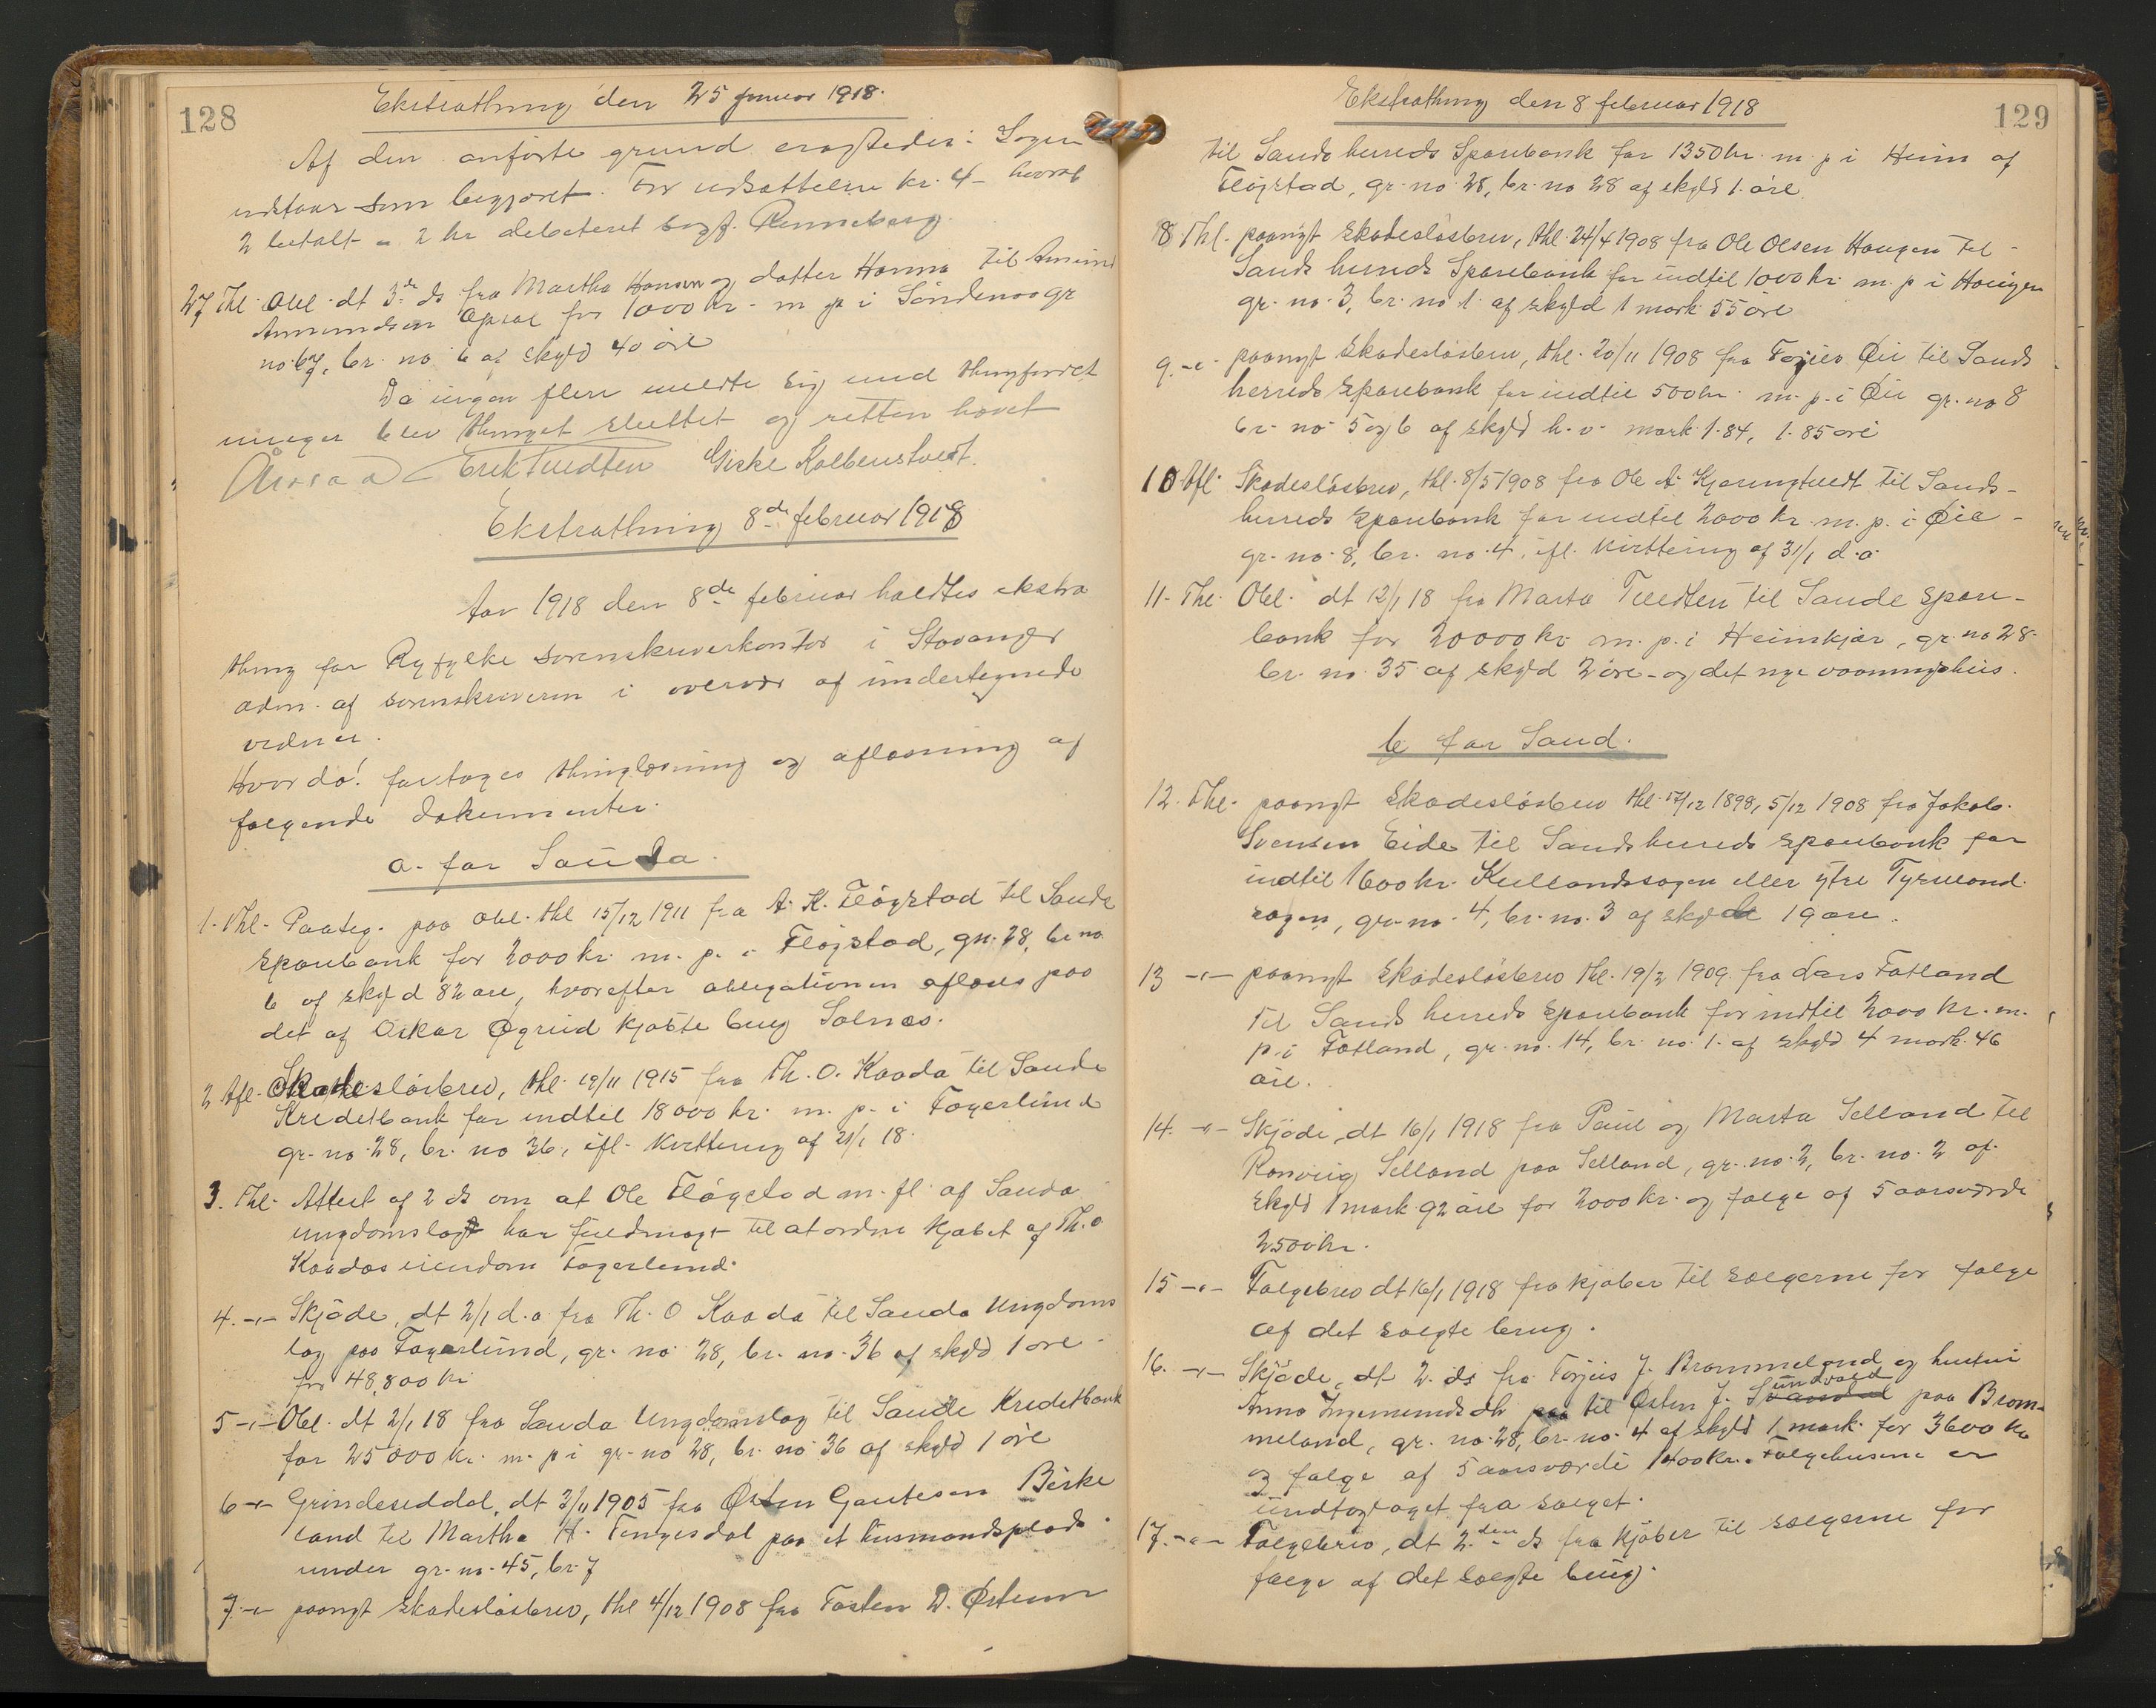 128
Ekstrathing den 25 januar 1918.
Af den anførte grund eragtedes: Sagen
udstaar som begjæret. For udsættelsen kr. 4 - hvoraf
2 betalt - 2 kr debiteret sagf. Renneberg.
27 Thl. Obl. dt 3de ds. fra Martha Hansen og datter Hanna til Amund
Amundsen Opsal for 1000 kr. m. p i Söndenaa gr
no. 67, br. no 6 af skyld 40 öre
Da ingen flere meldte sig med thingforret
ninger blev thinget sluttet og retten hævet
Aarsaa Erik Tvedten Giske Kolbenstvedt.
Ekstrathing 8de februar 1918
Aar 1918 den 8de februar holdtes ekstra
thing for Ryfylke sorenskriverkontor i Stavanger
adm. af sorenskriveren i overvær af undertegnede
vidner.
Hvor da! foretages thinglæsning og aflæsning af
følgende dokumenter.
a. for Sauda.
1. Thl. Paateg. paa obl. thl 15/12 1911 fra A. K. Fløgstad til Saude
Sparebank for 2000 kr. m. p. i Fløgstad, gn. 28, br no
6 af skyld 82 øre, hvorefter obligationen aflæses paa
det af Oskar Øgrid kjøbte brug Solnes.
2 Afl. Skadesløsbrev, thl. 19/11 1915 fra Th. O. Kaada til Saude
Kreditbank for indtil 18000 kr. m. p. i Fagerlund
gr. no. 28, br. no 36, ifl. kvittering af 21/1 18.
3. Thl. Attest af 2 ds om at Ole Fløgstad m. fl. af Sauda
ungdomslag har fuldmagt til at ordne kjøbet af Th. O
Kaadas eiendom Fagerlund.
4. -"- Skjöde, dt 2/1 d. a. fra Th. O Kaada til Sauda Ungdoms
lag paa Fagerlund, gr. no 28, br. no. 36 af skyld 1 øre
for 48.800 kr
5 -"- Obl. dt 2/1 18 fra Sauda Ungdomslag til Saude Kreditbank
for 25000 kr. m. p i gr. no 28, br. no 36 af skyld 1 öre
6 -"- Grindeseddel, dt 3/11 1905 fra Østen Gautesen Birke
land til Martha H. Tengesdal paa et husmandsplads
under gr. no. 45, br. 7
7 -"- paanyt skadesløsbrev, thl 4/12 1908 fra Tosten D. Østenn
Ekstrathing den 8 februar 1918
129
til Sands herreds Sparebank for 1350 kr. m. p i Heim af
Fløgstad, gr. no 28, br. no 28 af skyld 1 øre.
8 Thl. paanyt skadesløsbrev, thl. 24/4 1908 fra Ole Olsen Haugen til
Sands herreds Sparebank for indtil 1000 kr. m. p i Haugen
gr. no. 3, br. no 1. af skyld 1 mark 55 øre
9. -"- paanyt skadesløsbrev, thl. 20/11 1908 fra Torjus Øie til Sands
herreds Sparebank for indtil 500 kr. m. p. i Øie gr. no 8
br. no 5 og 6 af skyld h. v. mark 1.84, 1.85 øre
10 Afl. Skadesløsbrev, thl. 8/5 1908 fra Ole A. Kjæringtvedt til Sands
herreds Sparebank for indtil 2000 kr. m. p. i Øie
gr. no. 8, br. no. 4. ifl. kvittering af 31/1 d. a.
11. Thl. Obl. dt 12/1 18 fra Marta Tvedten til Saude Spare-
bank for 20000 kr m. p. i Heimkjær, gr. no 28.
br. no. 35 af skyld 2 øre - og det nye vaaningshus.
b for Sand.
12. Thl. paanyt skadesløsbrev thl. 17/12 1898, 5/12 1908 fra Jakob
Svensen Eide til Sands herreds Sparebank for
indtil 1600 kr. Kullandssagen eller ytre Tyrmand.
sagen, gr. no. 4, br. no. 3 af skyld 19 øre.
13 -"- paanyt skadesløsbrev thl. 19/2 1909. fra Lars Fatland
til Sands herreds Sparebank for indtil 2000 kr. m.
p. i Fatland, gr. no. 14, br. no. 1. af skyld 4 mark 46
øre.
14. -"- Skjöde, dt 16/1 1918 fra Paul og Marta Selland til
Ranveig Selland paa Selland, gr. no. 2, br. no. 2 af
skyld 1 mark 92 øre for 2000 kr. og følge af 5 aarsværdi
2500 kr.
15 -"- Følgebrev dt 16/1 1918 fra kjøber til sælgerne for følge
af det solgte brug.
16. -"- Skjöde, dt 2. ds fra Torjus J. Brommeland og hustru
Anna Ingemundsdtr til Østen J. Sundvold paa Brom-
meland, gr. no. 28, br. no. 4 af skyld 1 mark for 3600 kr
og følge af 5 aarsværdi 1400 kr. Følgehusene er
undtaget fra salget.
17. -"- Følgebrev, dt 2den ds fra kjøber til sælgerne for
følge af det solgte brug.